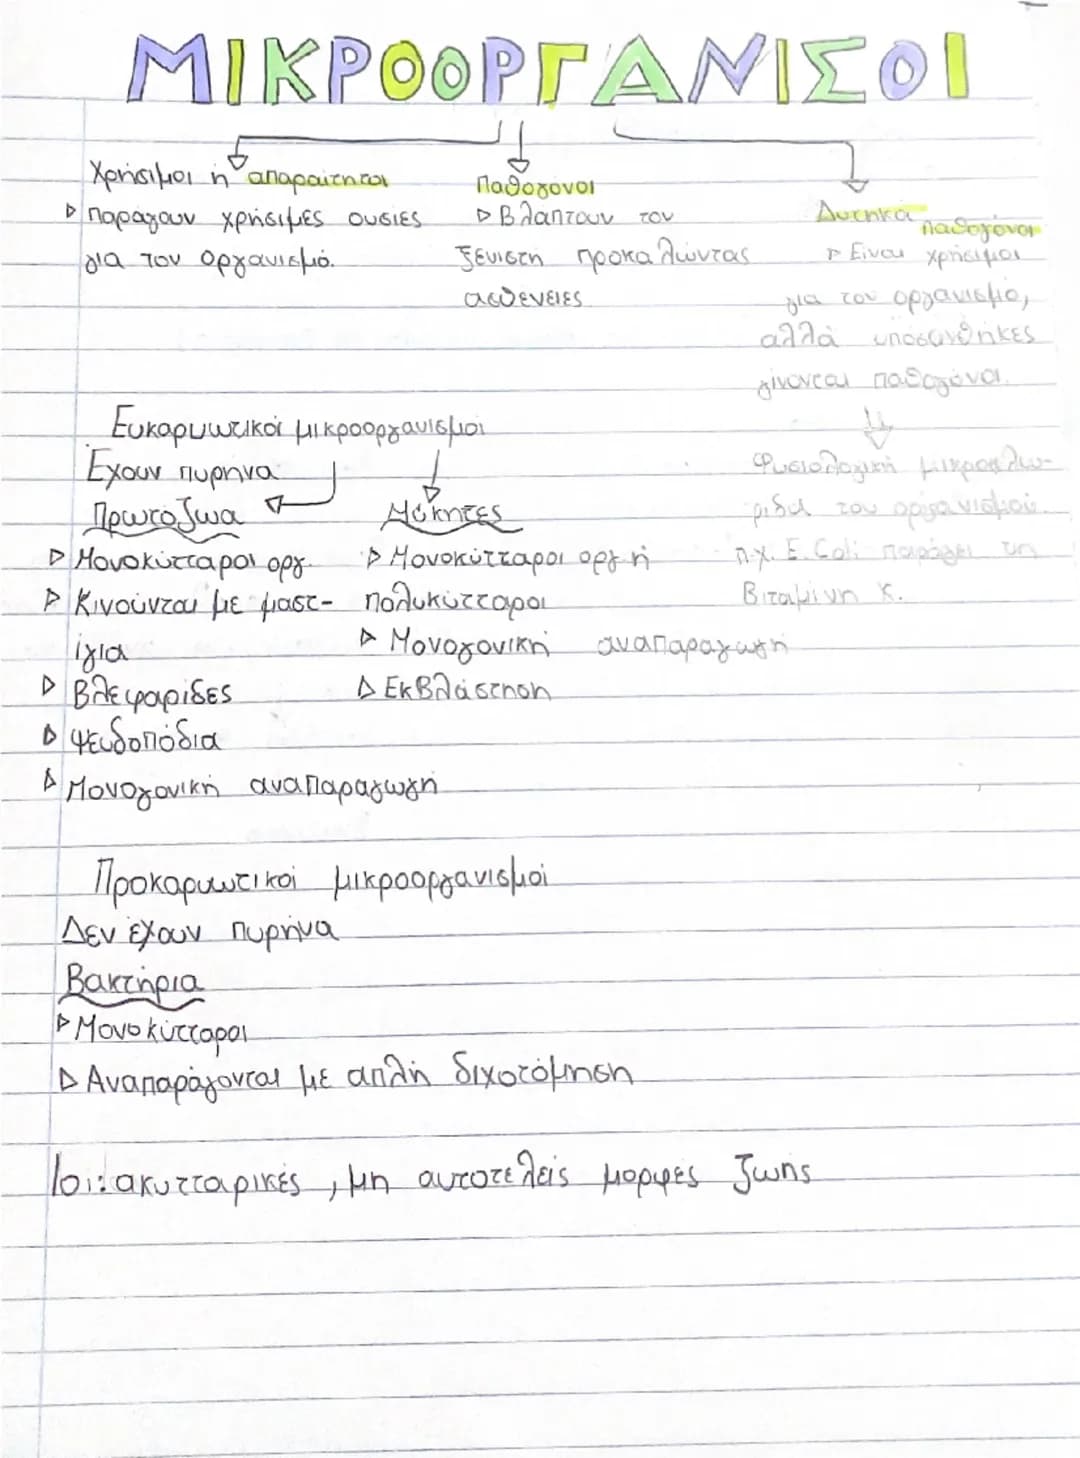 ΜΙΚΡΟΟΡΓΑΝΙΣΟΙ
Χρήσιμοι ή απαραίτητοι
▷ Παράγουν χρήσιμες ουσίες
για τον οργανισμό.
Παθογόνοι
▷ Βλάπτουν τον
ξενιστή προκαλώντας
ασθένειες
Δυτηκά παθογόνοι
▷ Είναι χρήσιμοι
για τον οργανισμό,
αλλά υπόσυνθήκες
γίνονται παθογόνοι.
Φυσιολογική μικροχλω-
ρίδα του οργανισμού.
π.χ. E. Coli παράγει τη
Βιταμίνη Κ.
Ευκαρυωτικοί μικροοργανισμοί
Έχουν πυρήνα
Πρωτόζωα
▷ Μονοκύτταροι οργ.
▷ Κινούνται με μαστ-
ίγια
▷ Βλεφαρίδες
▷ Ψευδοπόδια
▷ Μονογονική αναπαραγωγή
Μύκητες
▷ Μονοκύτταροι οργ ή
πολυκύτταροι
▷ Μονογονική αναπαραγωγή
▷ Εκβλάστηση
Προκαρυωτικοί μικροοργανισμοί
Δεν έχουν πυρήνα
Βακτήρια
▷ Μονοκύτταροι
▷ Αναπαράγονται με απλή διχοτόμηση
Ιοί: ακυτταρικές, μη αυτοτελείς μορφές ζωής